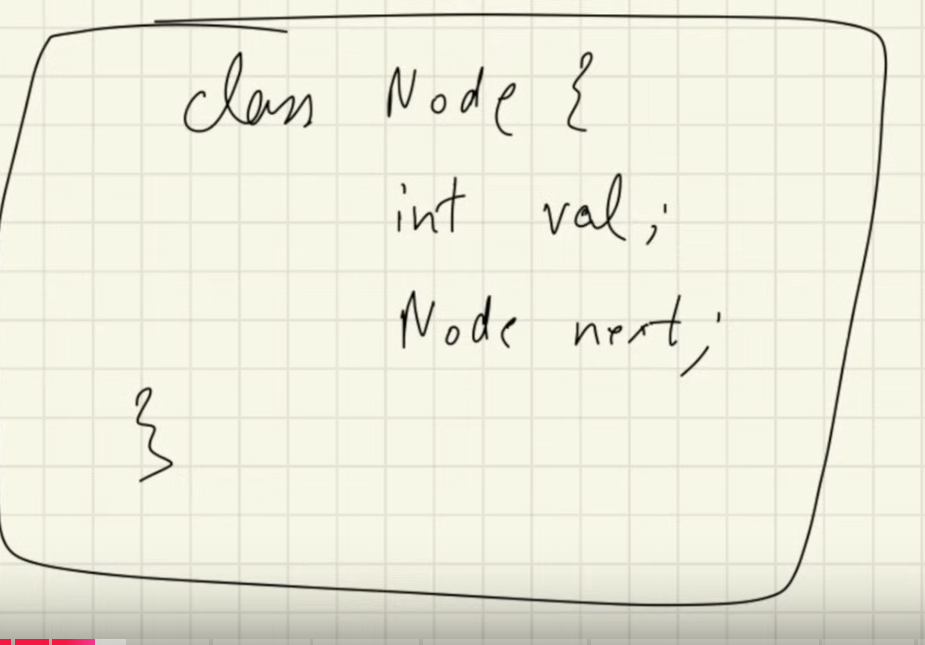 class Node {
int val;
Node next;
}